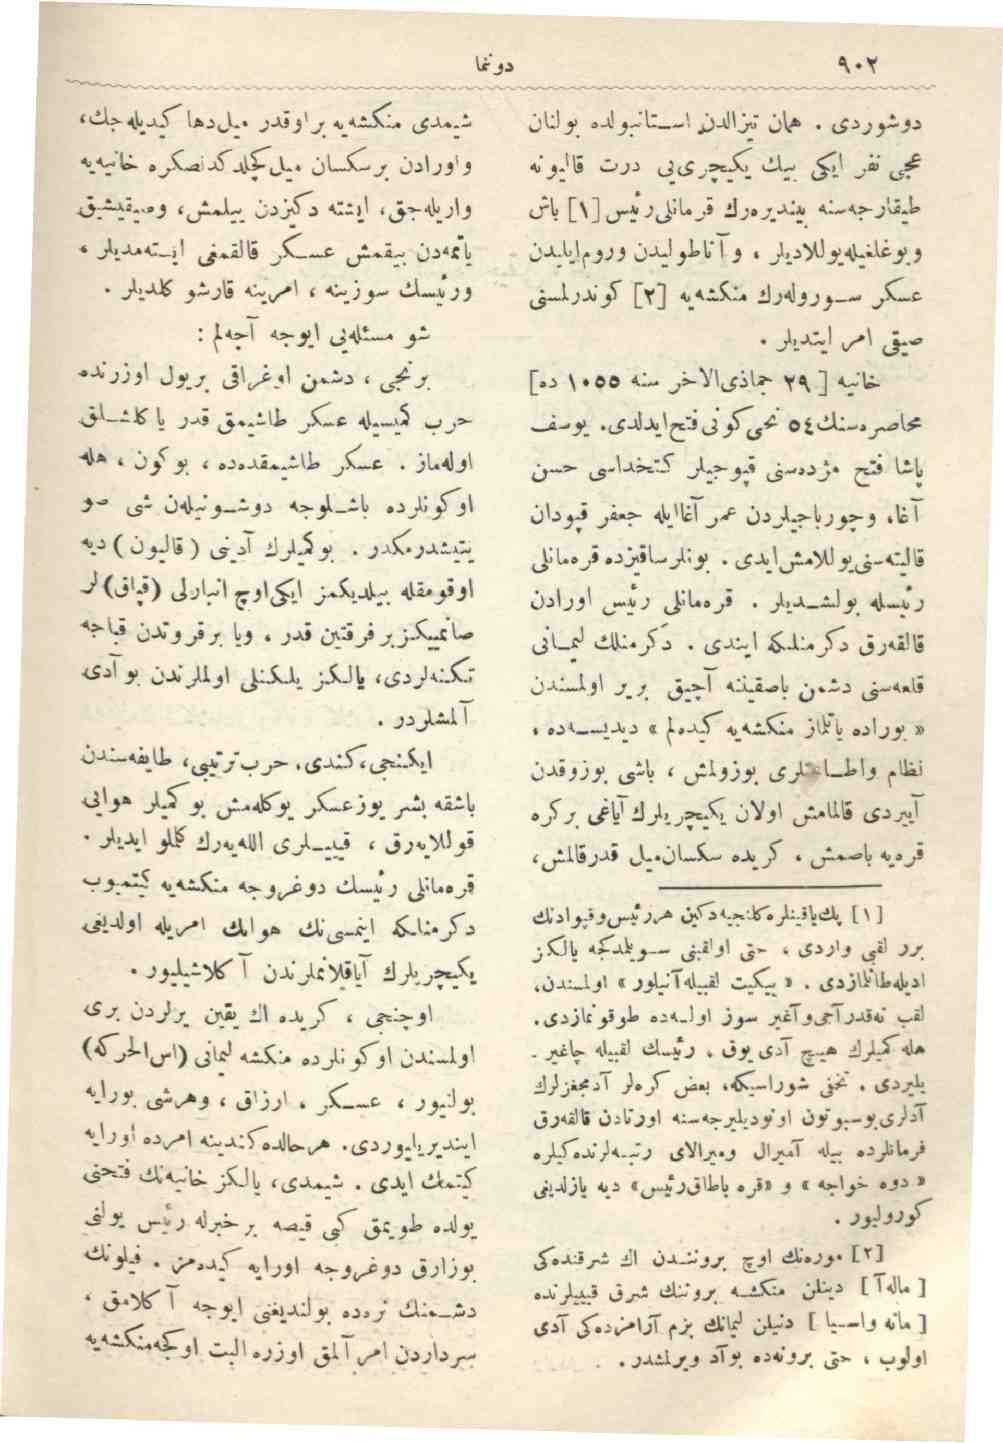 ٩٠٢
دوننما
دوشوردی . همان تیزالدن استانبولده بولنان
عجمی نفر ایكی بیك یكیچری‌یی درت قالیونه
طیقارجه‌سنه بیندیره‌رك قرمانلی رئیس [١] باش
وبوغلغیله یوللادیلر ، و آناطولیدن وروم‌ایلیدن
عسكر سوروله‌رك منكشه‌یه [٢] كوندرلمسنی
صیقی امر ایتدیلر .
خانیه [ ٢٩ جماذی‌الاخر سنه ١٠٥٥ ده]
محاصره‌سنك ٥٤ نجی كونی فتح ایدلدی. یوسف
پاشا فتح مژده‌سنی قپوجیلر كتخداسی حسن
آغا، وچورباجیلردن عمر آغاایله جعفر قپودان
قالیته‌سنی یوللامش ایدی . بونلر ساقیزده قره‌مانلی
رئیسله بولشدیلر . قره‌مانلی رئیس اورادن
قالقه‌رق دكرمنلیكه ایندی . دكرمنلك لیمانی
قلعه‌سنی دشمن باصقیننه آچیق بریر اولمسندن
« بوراده یاتلماز منكشه‌یه كیده‌لم » دیدیسه‌ده ،
نظام واطاعتلری بوزولمش ، باشی بوزوقدن
آییردی قالمامش اولان یكیچریلرك آیاغی بركره
قره‌یه باصمش ، كریده سكسان میل قدرقالمش،
[١] پك یاقینلره كلنجیه دكین هررئیس وقپودانك
برر لقبی واردی ، حتی اولقبنی سویلمدكجه یالكز
ادیله طانلمازدی . « بیكیت لقبیله آنیلور » اولمسندن،
لقب نه‌قدر آجی و آغیر سوز اولسه‌ده طوقونمازدی.
هله كمیلرك هیچ آدی یوق ، رئیسك لقبیله چاغیر -
یلیردی . تحفی شوراسیكه، بعض كره‌لر آدمجغزلرك
آدلری بوسبوتون اونودیلیرجه‌سنه اورتادن قالقه‌رق
فرمانلرده بیله آمیرال ومیرالای رتبه‌لرنده‌كیلره
« دوه خواجه » و «قره باطاق رئیس» دیه یازلدیغی
كورولیور .
[٢] موره‌نك اوچ بروننندن اك شرقنده‌كی
[ ماله‌آ ] دینلن منكشه بروننك شرق قییلرنده
[ مانه واسیا ] دنیلن لیمانك بزم آرامزده‌كی آدی
اولوب ، حتی برونه‌ده بوآد ویرلمشدر .
شیمدی منكشه‌یه براوقدر میل دها كیدیله‌جك،
واورادن برسكسان میل كچلدكدنصكره خانیه‌یه
واریله‌جق، ایشته دكیزدن ییلمش، وصیقیشیق
یاتمه‌دن بیقمش عسكر قالقمغی ایسته‌مدیلر ،
ورئیسك سوزینه ، امرینه قارشو كلدیلر .
شو مسئله‌یی ایوجه آچه‌لم :
برنجی ، دشمن اوغراقی بریول اوزرنده
حرب كمیسیله عسكر طاشیمق قدر یاكلشلق
اوله‌ماز . عسكر طاشیمقده‌ده ، بوكون ، هله
اوكونلرده باشلوجه دوشونیله‌ن شی صو
یتیشدرمكدر . بوكمیلرك آدینی (قالیون) دیه
اوقومقله بیلدیكمز ایكی اوچ انبارلی (قپاق) لر
صانمییكز برفرقتین قدر ، ویا برقروتدن قباجه
تكنه‌لردی، یالكز یلكنلی اولملرندن بوآدی
آلمشلردر .
ایكنجی، كندی، حرب ترتیبی، طایفه‌سندن
باشقه بشر یوز عسكر یوكله‌مش بوكمیلر هوایی
قوللایه‌رق ، قییلری الله‌یه‌رك كللو ایدیلر .
قره‌مانلی رئیسك دوغروجه منكشه‌یه كیتمیوب
دكرمنلكه اینمسی‌نك هوانك امریله اولدیغی
یكیچریلرك آیاقلانملرندن آكلاشیلیور .
اوچنجی ، كریده اك یقین یرلردن بری
اولمسندن اوكونلرده منكشه لیمانی (اس‌الحركه)
بولنیور ، عسكر ، ارزاق ، وهرشی بورایه
ایندیریلیوردی. هرحالده كندینه امرده اورایه
كیتمك ایدی . شیمدی، یالكز خانیه‌نك فتحنی
یولده طویمق كبی قیصه برخبرله رئیس یولنی
بوزارق دوغروجه اورایه كیده‌مز . فیلونك
دشمنك نره‌ده بولندیغنی ایوجه آكلامق ،
سرداردن امر آلمق اوزره البت اوكجه منكشه‌یه